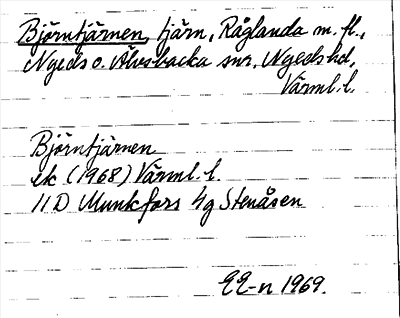 Björntjärnen, tjärn, Råglanda m. fl.,
Nyeds o. Älvsbacka snr, Nyeds hd,
Värml. l.
Björntjärnen
ek (1968) Värml. l.
11 D Munkfors 4g Stenåsen
EE-n 1969.